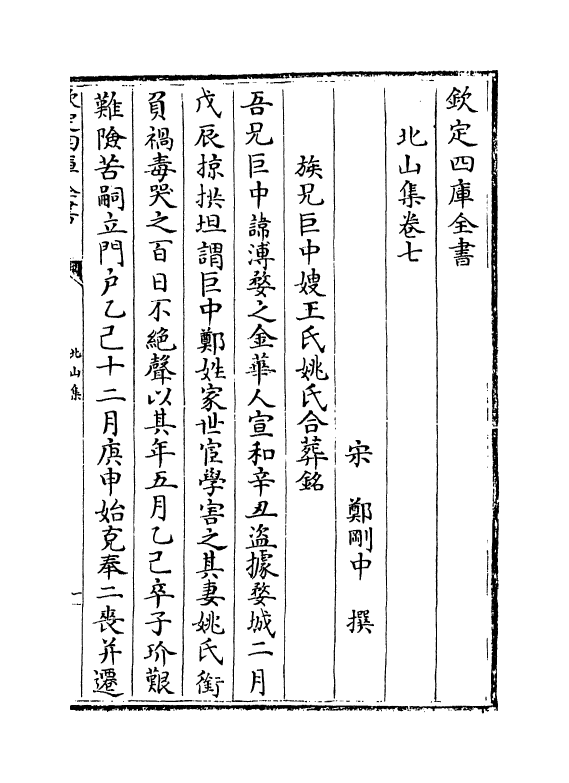 欽定四庫全書
北山集卷七
宋 鄭剛中 撰
族兄巨中嫂王氏姚氏合葬銘
吾兄巨中諱溥婺之金華人宣和辛丑盜據婺城二月
戊辰掠拱坦謂巨中鄭姓家世宦學害之其妻姚氏銜
負禍毒哭之百日不絶聲以其年五月乙己卒子玠艱
難險苦嗣立門户乙己十二月庚申始克奉二喪并遷
欽定四庫全書
北山集
一